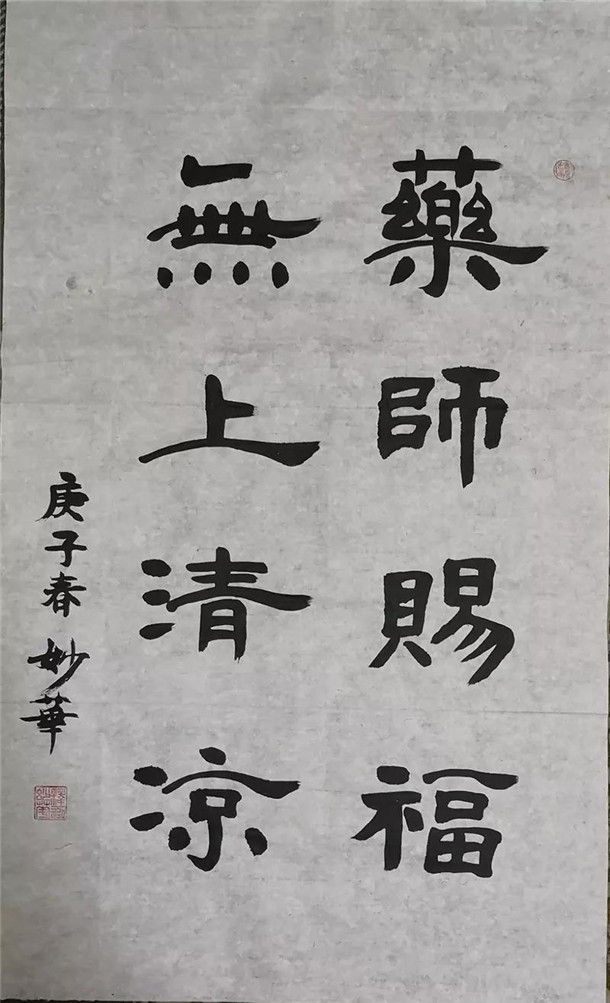 藥師賜福
無上清凉
庚子春 妙華